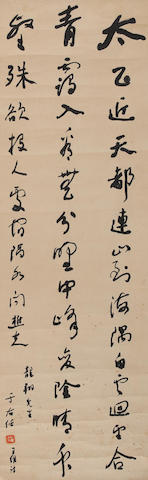 太乙近天都連山到海隅白雲迴望合
青靄入看無分野中峰變陰晴眾
壑殊欲投人處宿隔水問樵夫
先生
王維詩
于右任